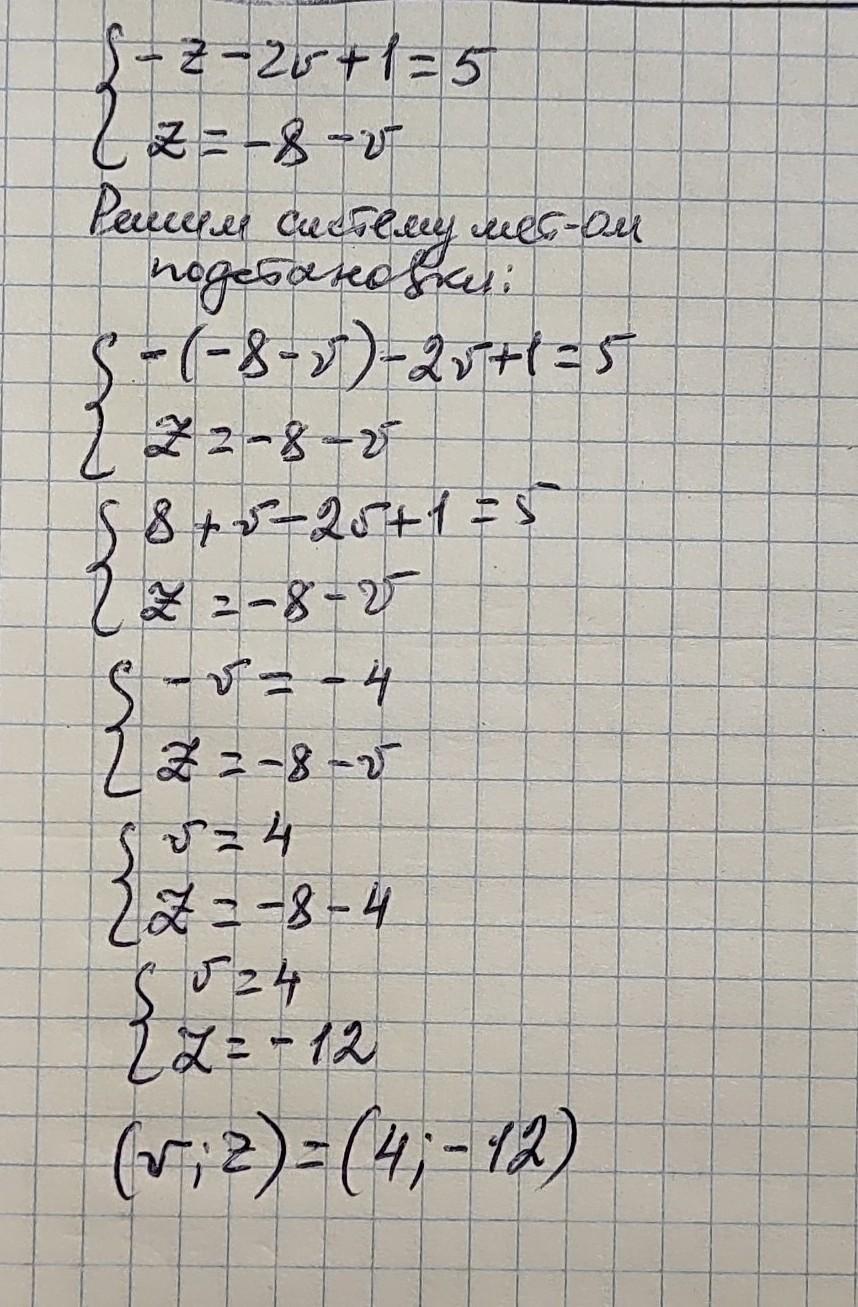 -z-2v+1=5
z=-8-v
Решим систему мет-ом
подстановки:
-(-8-v)-2v+1=5
z=-8-v
8+v-2v+1=5
z=-8-v
-v=-4
z=-8-v
v=4
z=-8-4
v=4
z=-12
(v;z)=(4;-12)